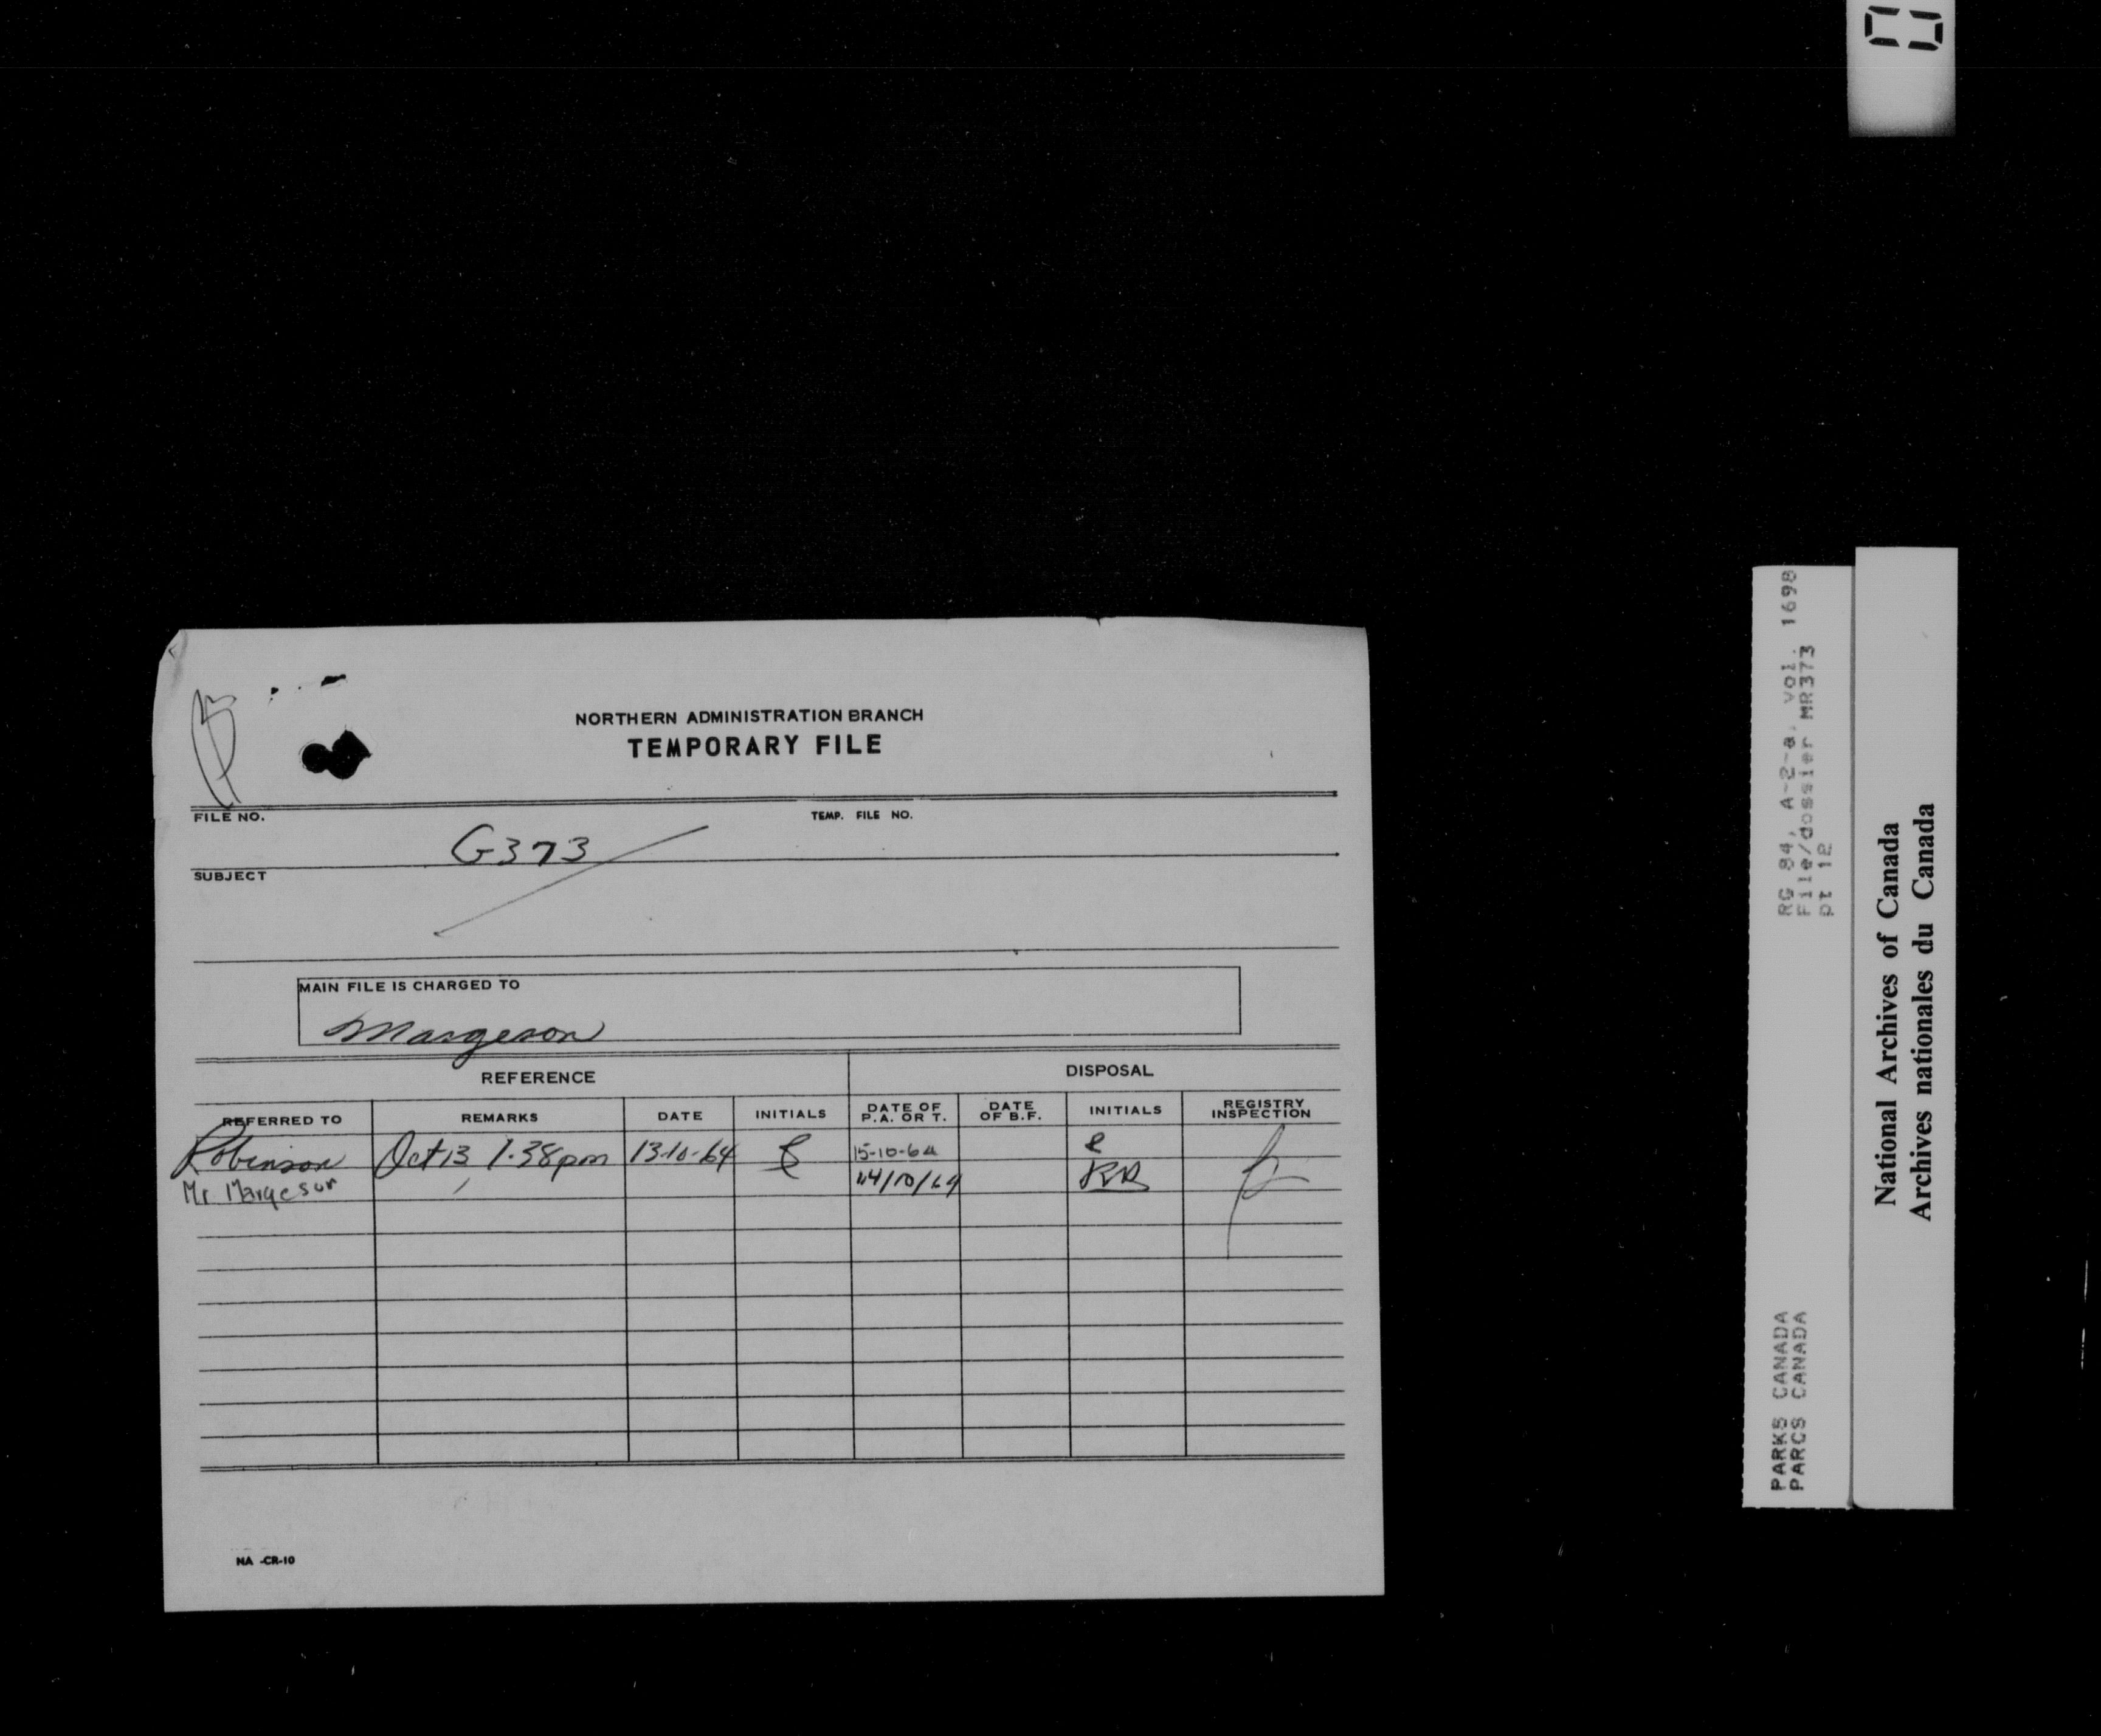 NORTHERN ADMINISTRATION BRANCH
TEMPORARY FILE
FILE NO.
TEMP. FILE NO.
G373
SUBJECT
MAIN FILE IS CHARGED TO
Margeson
REFERENCE DISPOSAL
REFERRED TO REMARKS DATE INITIALS DATE OF P.A. OR T. DATE OF B.F. INITIALS REGISTRY INSPECTION
Robinson Oct 13 1.38pm 13-10-64 15-10-64
Mr. Margeson /10/64 RR
NA -CR-10
RG 84, A-2-a, vol. 1698
File/dossier MR373
pt 12
PARKS CANADA
PARCS CANADA
National Archives of Canada
Archives nationales du Canada